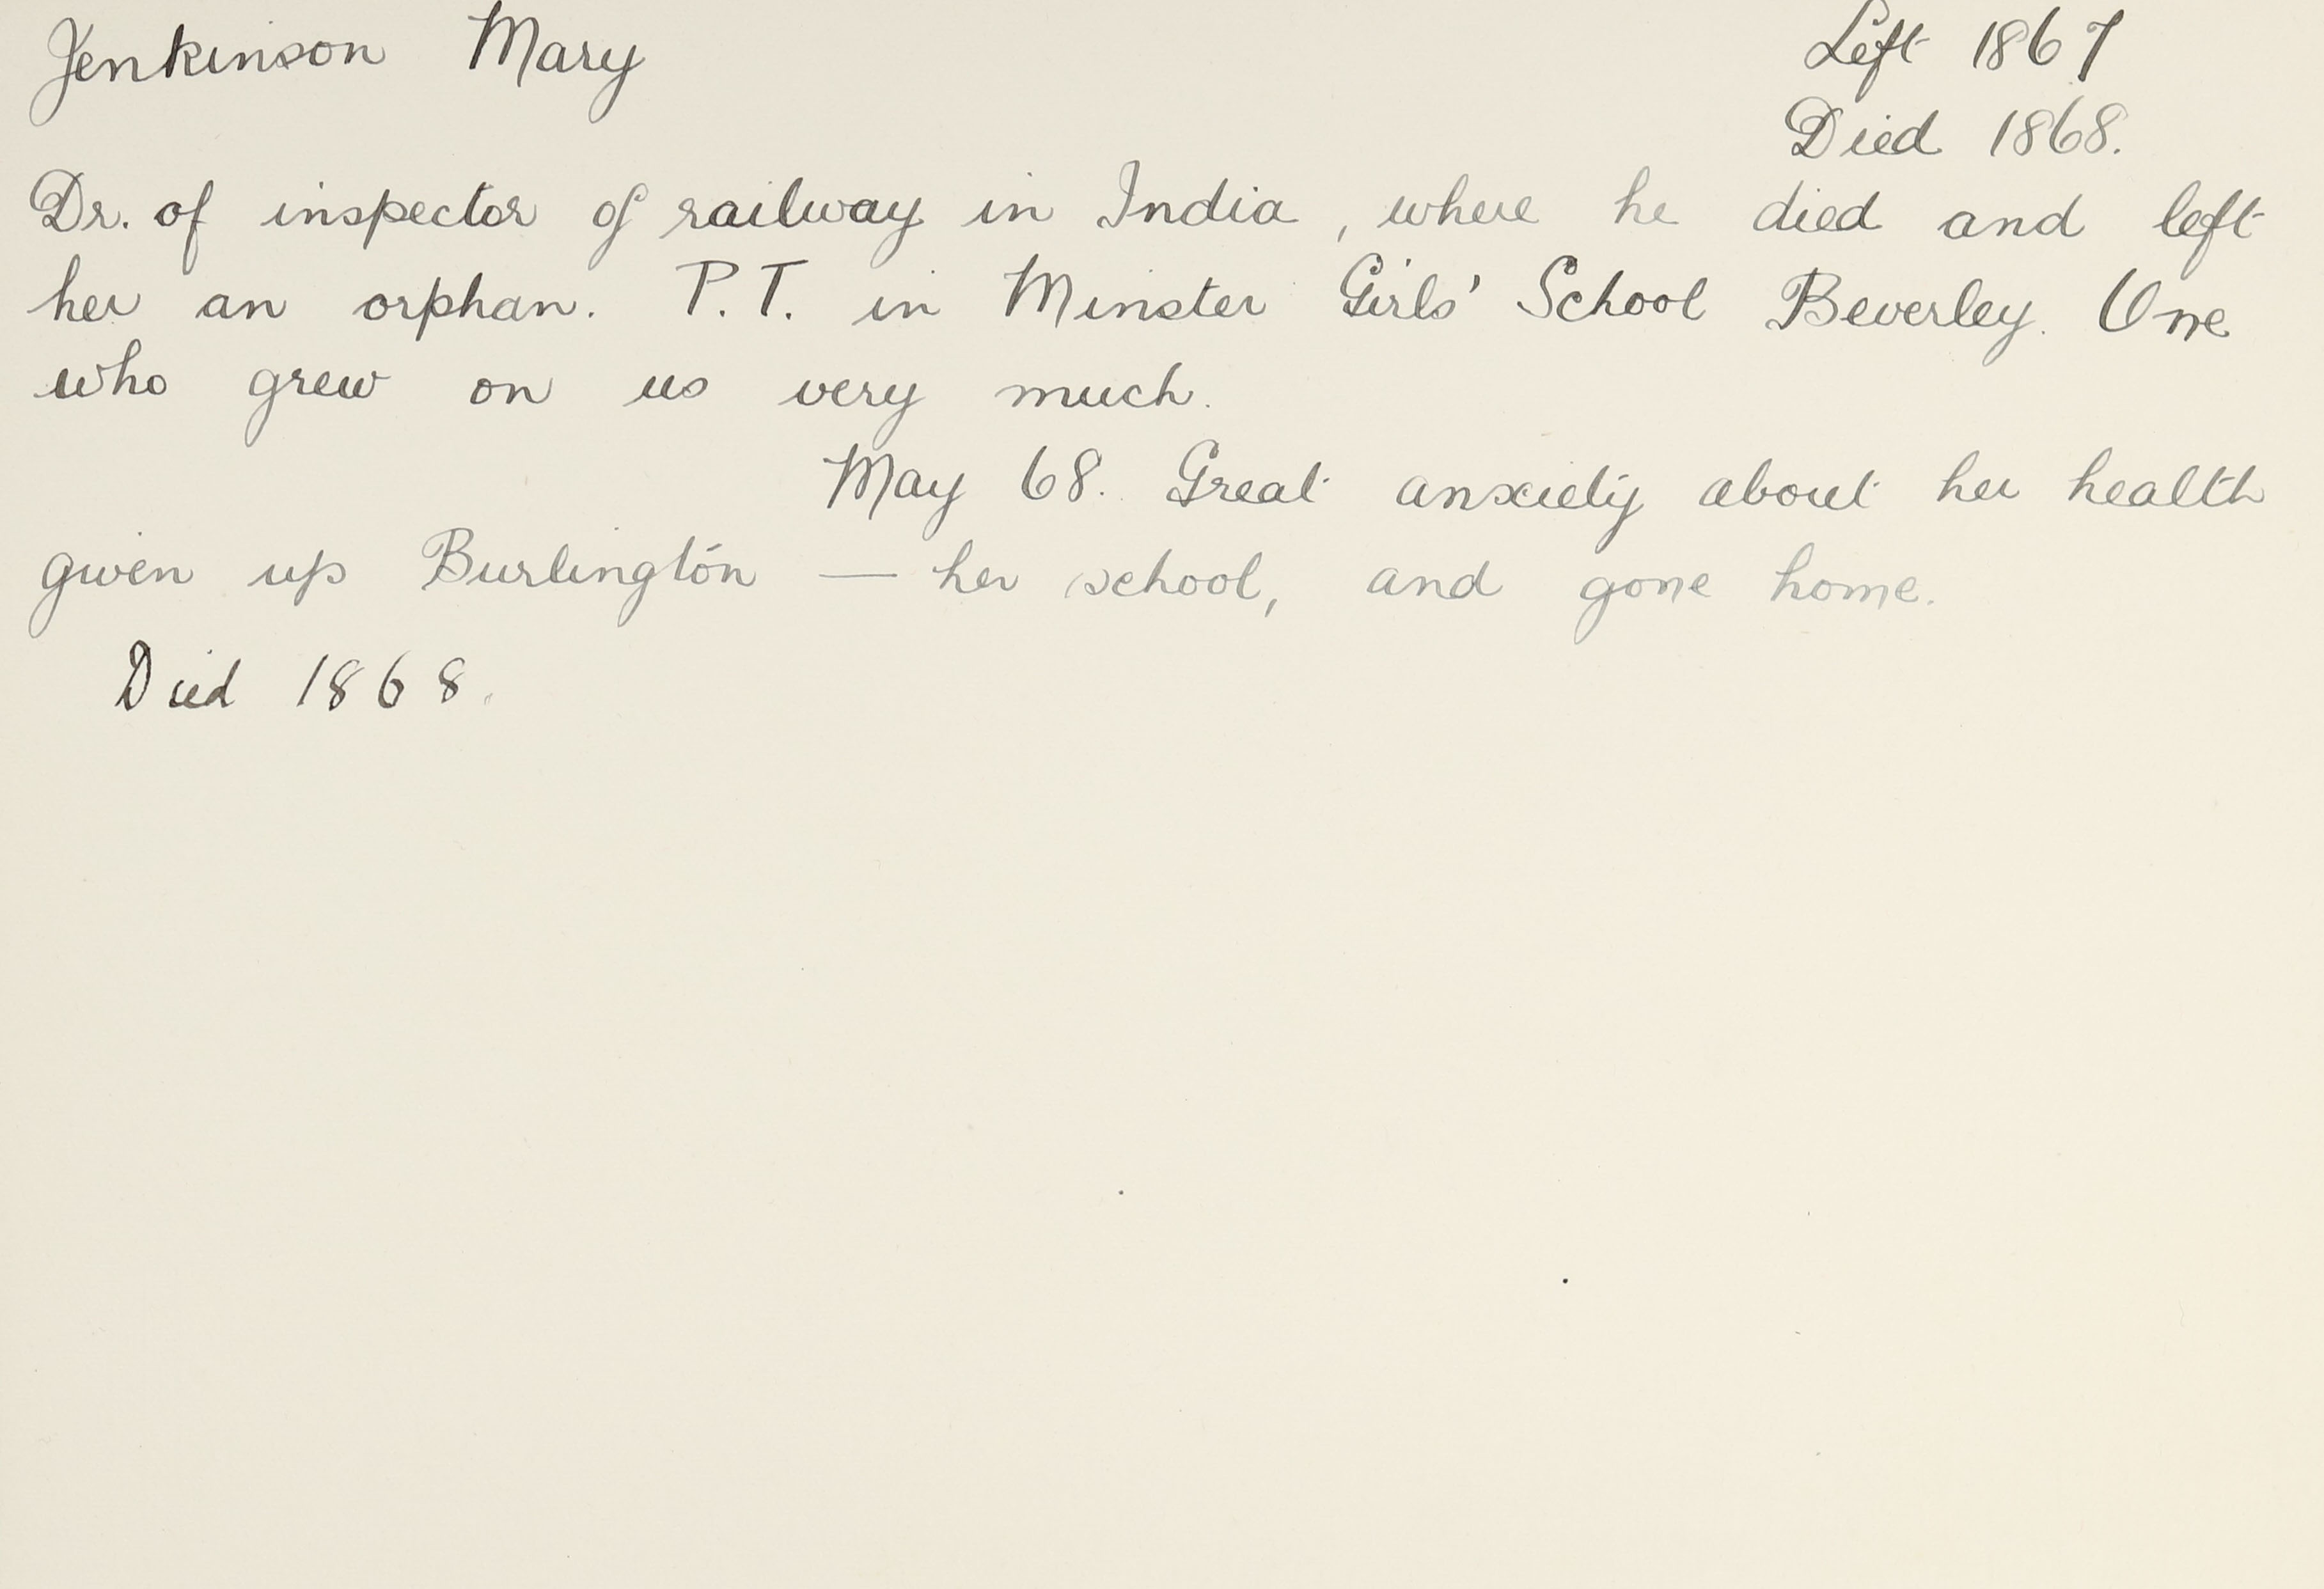 Jenkinson Mary Left 1867
Died 1868.
Dr. of inspector of railway in India, where he died and left
her an orphan. P.T. in Minster Girls' School Beverley. One
who grew on us very much.
May 68. Great anxiety about her health
given up Burlington — her school, and gone home.
Died 1868.